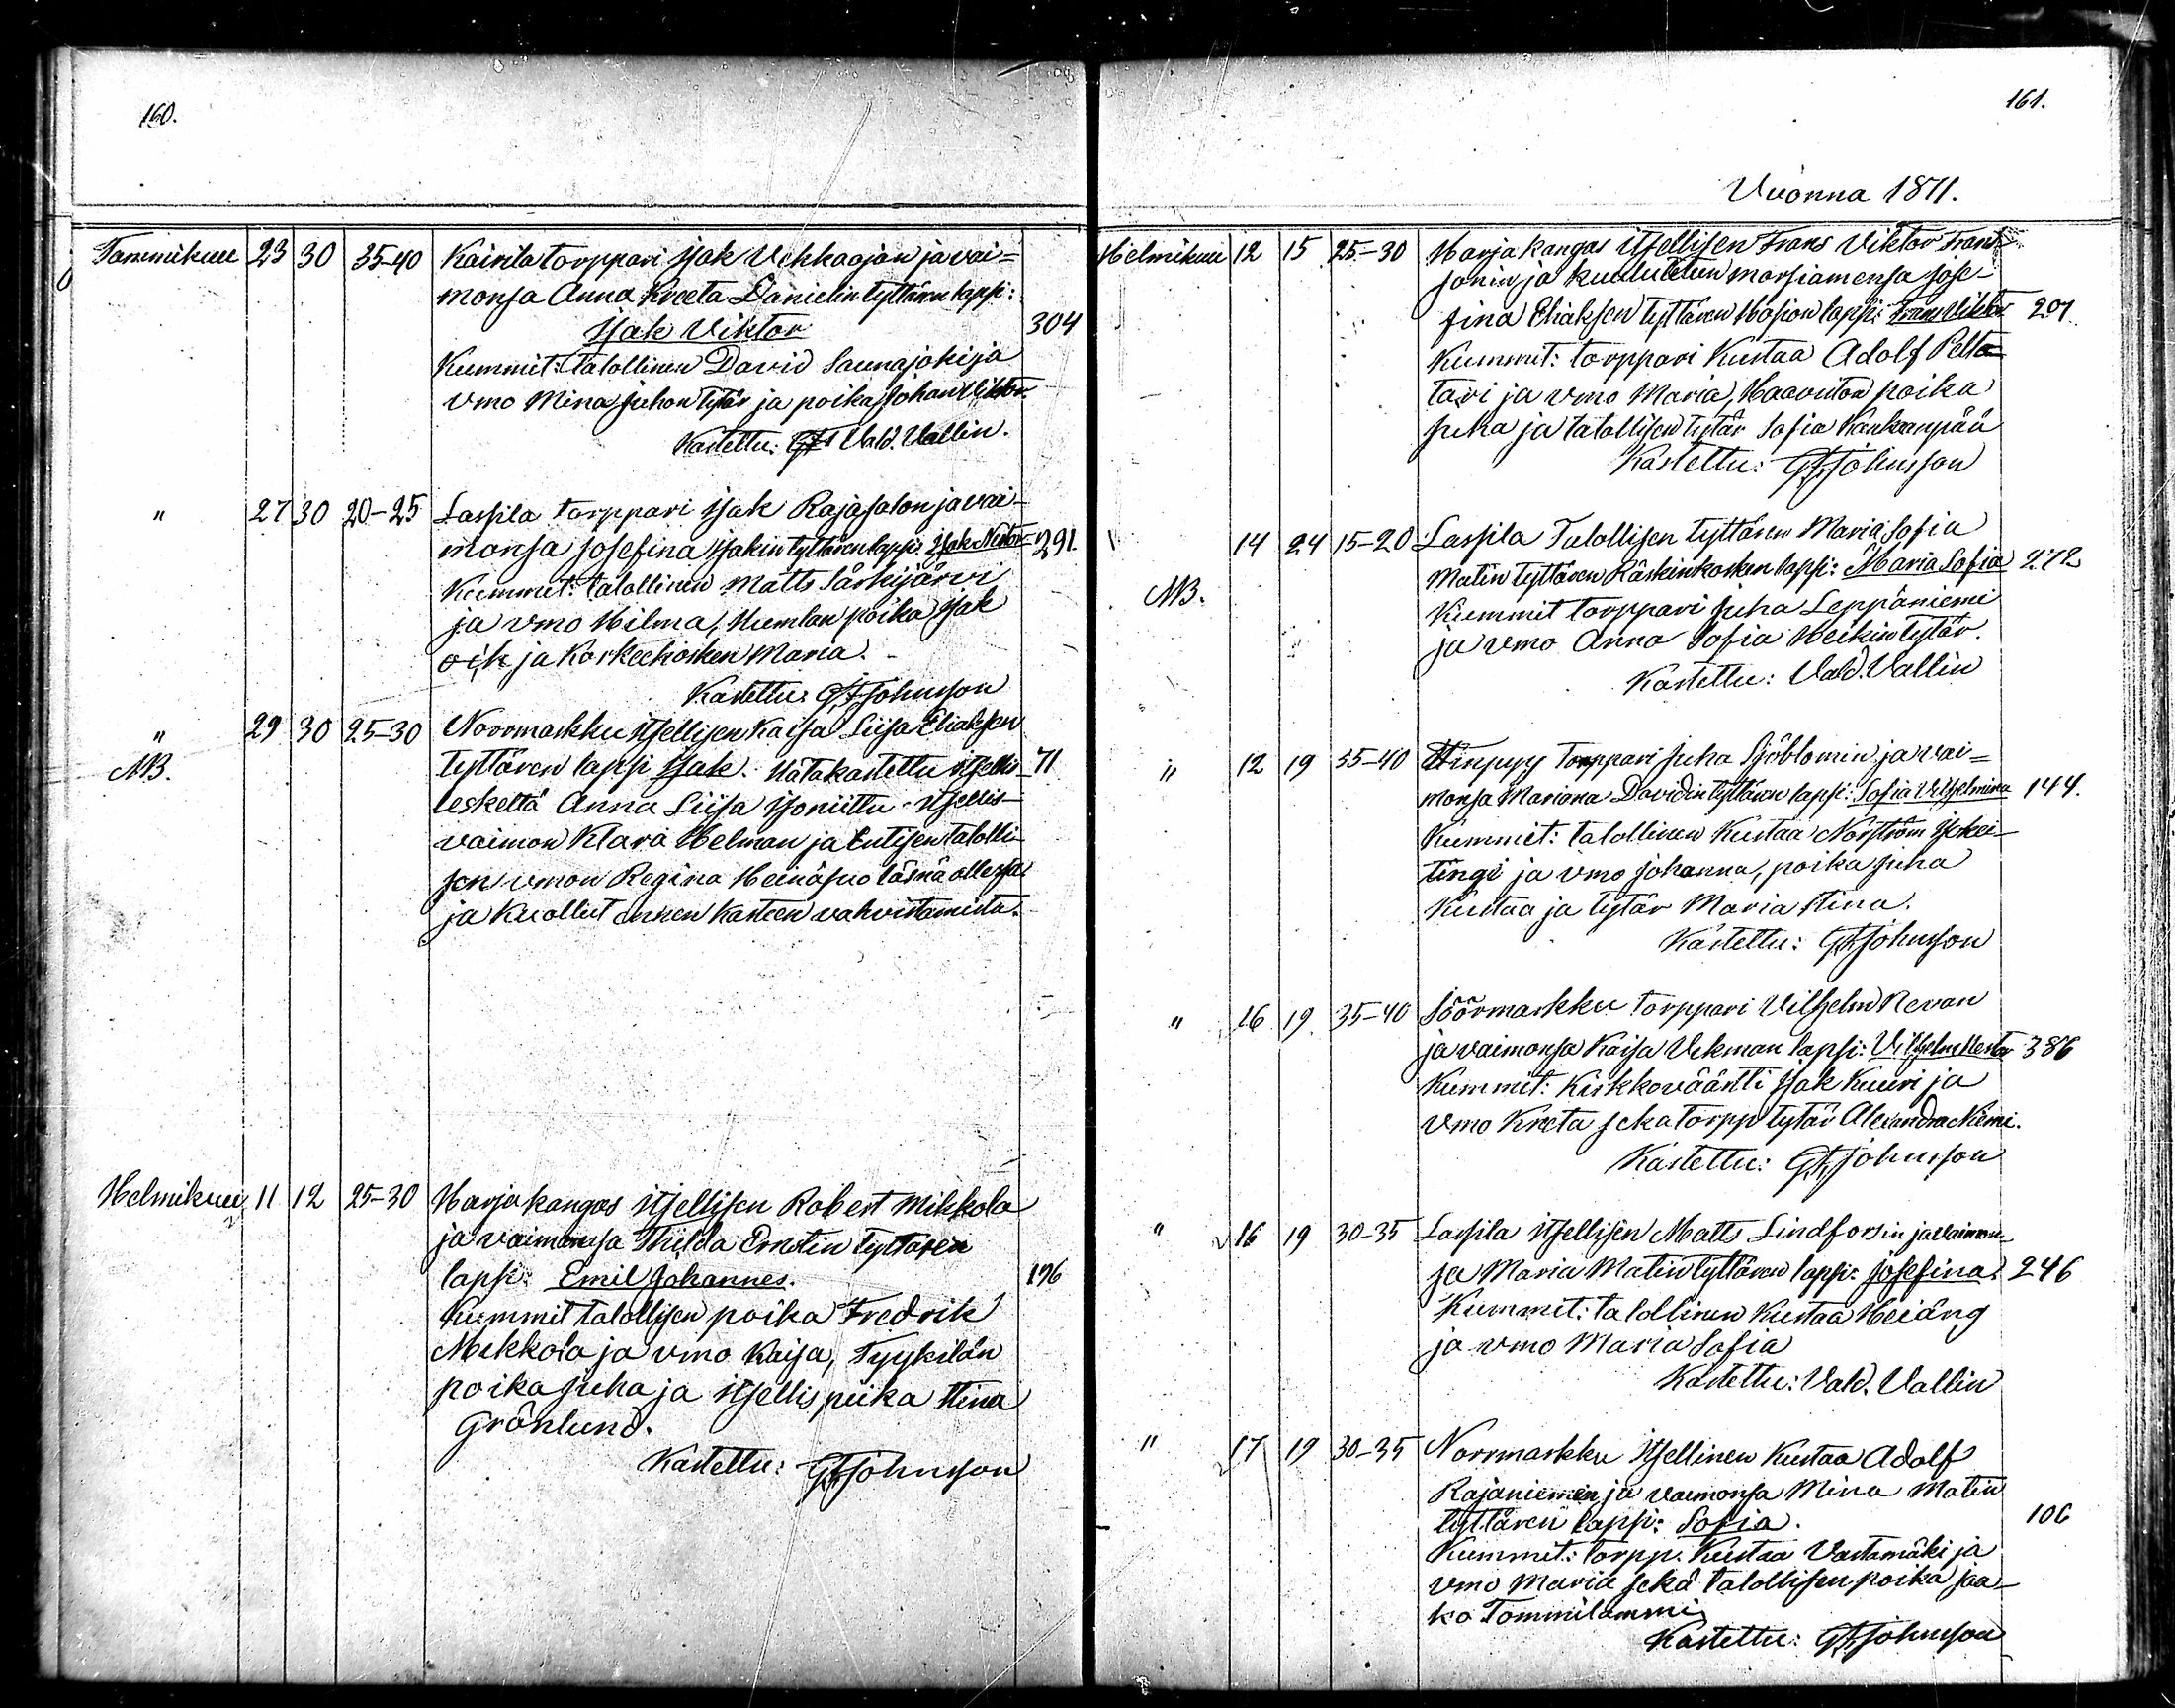 160.
Tammikuu 23 30 35-40 Kairila torppari Isak Vehkaojan ja vai=
monsa Anna Kreeta Danielin tyttären lapsi:
Isak Viktor 304
Kummit: talollinen David Saunajoki ja
vmo Mina, Juhon tytär ja poika Johan Viktor.
Kastettu: Vald. Vallin.
" 27 30 20-25 Lassila torppari Isak Rajasalon ja vai-
monsa Josefina Isakin tyttären lapsi: Isak Nestor 291.
Kummit: talollinen Matts Särkijärvi
ja vmo Hilma, Humlan poika Isak
ja Korkeekosken Maria.
Kastettu: G F Johnsson
" 29 30 25-30 Norrmarkku itsellisen Kaisa Liisa Eliaksen
NB. tyttären lapsi Isak. Hätäkastettu itsellis- 71
leskeltä Anna Liisa Isoniittu itsellis-
vaimon Klara Helman ja talolli-
sen vmon Regina Heinäsuo läsnä ollessa
ja kuollut ennen kasteen vahvistamista.
Helmikuu 11 12 25-30 Harjakangas itsellisen Robert Mikkola
ja vaimonsa Thilda Ernstin tyttären
lapsi: Emil Johannes. 196
Kummit talollisen poika Fredrik
Mikkola ja vmo Kaisa, Tyykilän
poika Juha ja itsellis piika Stina
Grönlund.
Kastettu: G F Johnsson
161.
Vuonna 1871.
Helmikuu 12 15 25-30 Harjakangas itsellisen Frans Viktor Frans
sonin ja kuulutetun morsiamensa Jose-
fina Eliaksen tyttären lapsi: Frans Viktor 207
Kummit: torppari Kustaa Adolf Pelto
tari ja vmo Maria, Haaviston poika
Juha ja talollisen tytär Sofia Kankaanpää
Kastettu: G F Johnsson
" 14 24 15-20 Lassila Talollisen tyttären Maria Sofia
NB. Matin tyttären lapsi: Maria Sofia 272
Kummit torppari Juha Leppäniemi
ja vmo Anna Sofia Heikin tytär.
Kastettu: Vald. Vallin
" 12 19 35-40 Finpyy Torppari Juha Sjöblomin ja vai=
monsa Mariana Davidin tyttären lapsi: Sofia Vilhelmina 144.
Kummit: talollinen Kustaa Norström
tingi ja vmo Johanna, poika Juha
Kustaa ja tytär Maria Stina.
Kastettu: G F Johnsson
" 16 19 35-40 Söörmarkku torppari Vilhelm Nevan
ja vaimonsa Kaisa Vekman lapsi: Vilhelm Nestor 386
Kummit: Kirkkoväärtti Isak Kuuri ja
vmo Kreeta seka torpp tytär Alexandra Niemi.
Kastettu: G F Johnsson
" 16 19 30-35 Lassila itsellisen Matts Lindforsin ja vaimon-
sa Maria Matin tyttären lapsi: Josefina. 246
Kummit: talollinen Kustaa Heiäng
ja vmo Maria Sofia
Kastettu: Vald. Vallin
" 17 19 30-35 Norrmarkku Itsellinen Kustaa Adolf
Rajaniemen ja vaimonsa Mina Matin
tyttären lapsi: Sofia. 106
Kummit: torpp. Kustaa Vastamäki ja
vmo Maria sekä talollisen poika Jaa-
ko Tommilammi
Kastettu: G F Johnsson